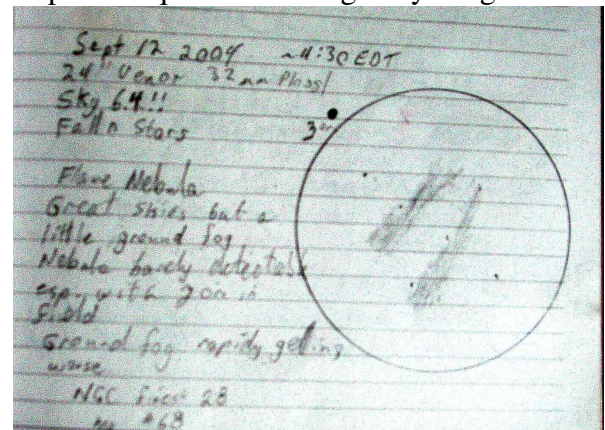 Sept 12 2009 ~4:30 EDT
24" 32mm Plossl
Sky 6.4!!
Fall Stars
3
Flame Nebula
Great skies but a
little ground fog
Nebula barely detectable
esp. with in
field
Ground fog rapidly getting
worse
NGC 28
#68